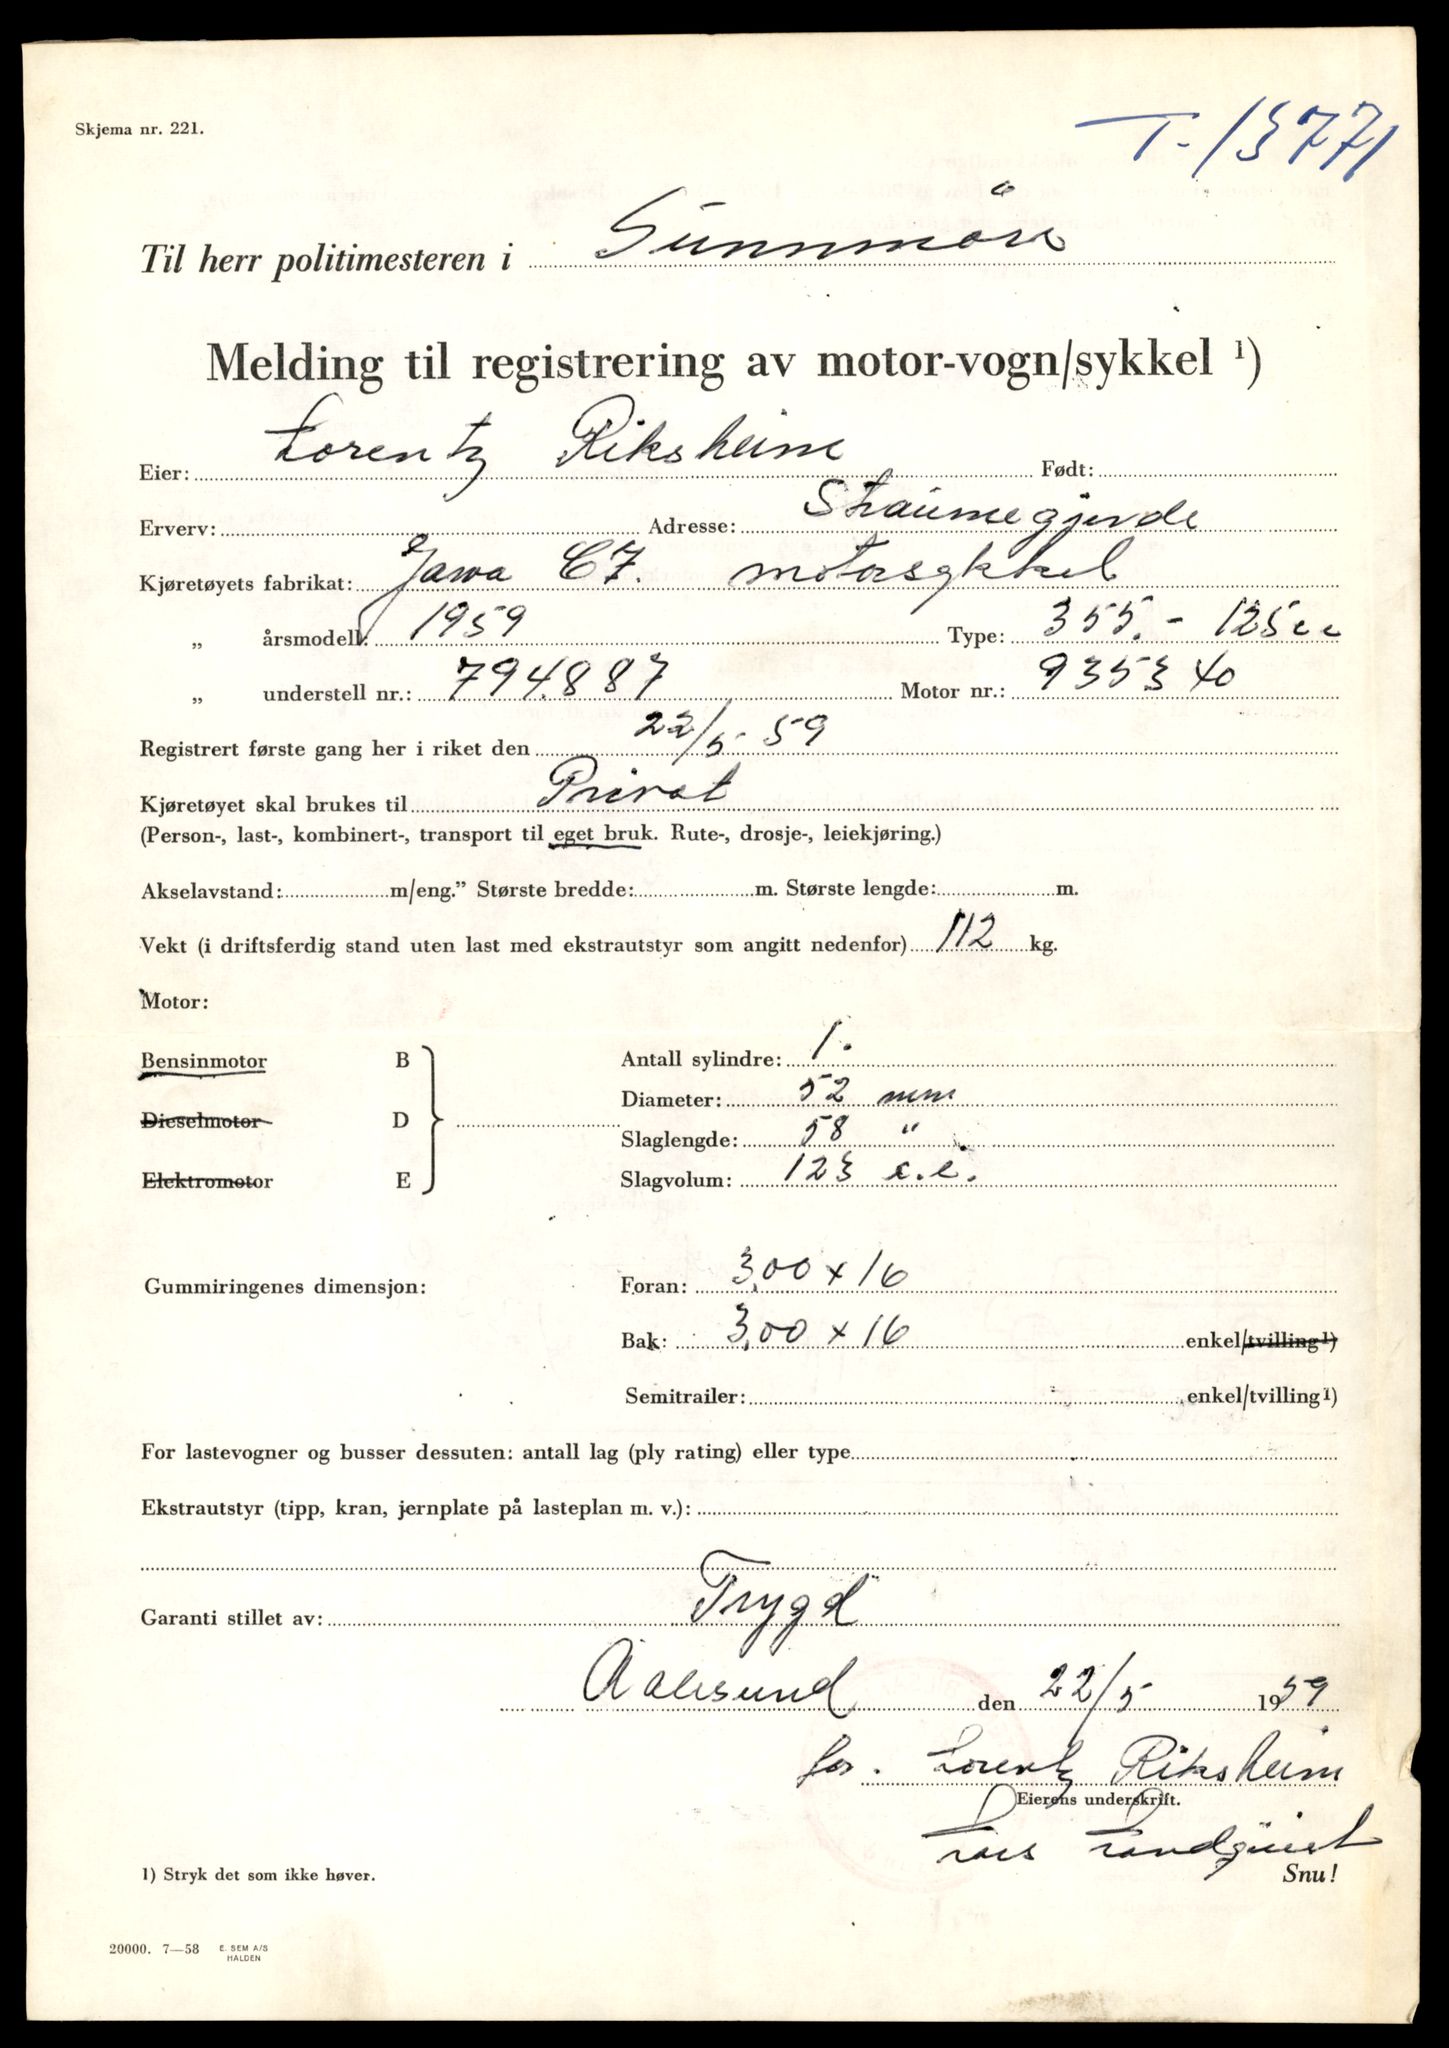 Skjema nr. 221.
T-13771
Til herr politimesteren i Sunnmöre
Melding til registrering av motor-vogn/sykkel ¹)
Eier: Lorentz Riksheim Født:
Erverv: Adresse: Straumegjerde
Kjøretøyets fabrikat: Jawa CZ. motorsykkel
„ årsmodell: 1959 Type: 355.- 125 cc
„ understell nr.: 794887 Motor nr.: 935340
Registrert første gang her i riket den 22/5 59
Kjøretøyet skal brukes til Privat
(Person-, last-, kombinert-, transport til eget bruk. Rute-, drosje-, leiekjøring.)
Akselavstand: m/eng.” Største bredde: m. Største lengde: m.
Vekt (i driftsferdig stand uten last med ekstrautstyr som angitt nedenfor) 112 kg.
Motor:
Bensinmotor B Antall sylindre: 1.
Diameter: 52 mm
Dieselmotor D
Slaglengde: 58 "
Elektromotor E Slagvolum: 123 c.c.
Gummiringenes dimensjon: Foran: 3,00 x 16
Bak: 3,00 x 16 enkel/tvilling¹)
Semitrailer: enkel/tvilling¹)
For lastevogner og busser dessuten: antall lag (ply rating) eller type
Ekstrautstyr (tipp, kran, jernplate på lasteplan m. v.):
Garanti stillet av: Trygd
Aalesund den 22/5 1959
for. Lorentz Riksheim
Eierens underskrift.
Lars Landquist
1) Stryk det som ikke høver. Snu!
20000. 7—58 E. SEM A/S
HALDEN